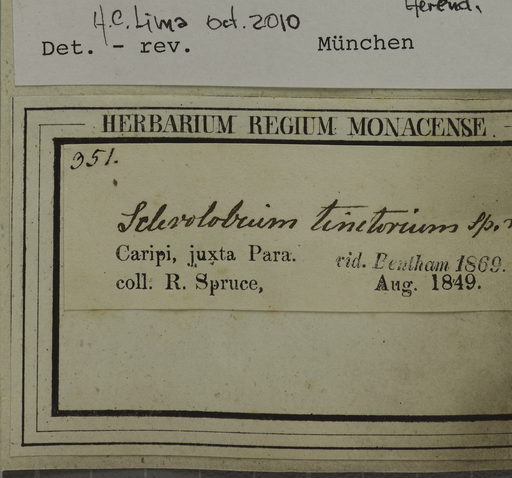 H.C. Lima oct. 2010
Det. - rev. München
HERBARIUM REGIUM MONACENSE.
351.
Sclerolobium tinctorium sp.
Caripi, juxta Para. vid. Bentham 1869.
coll. R. Spruce, Aug. 1849.